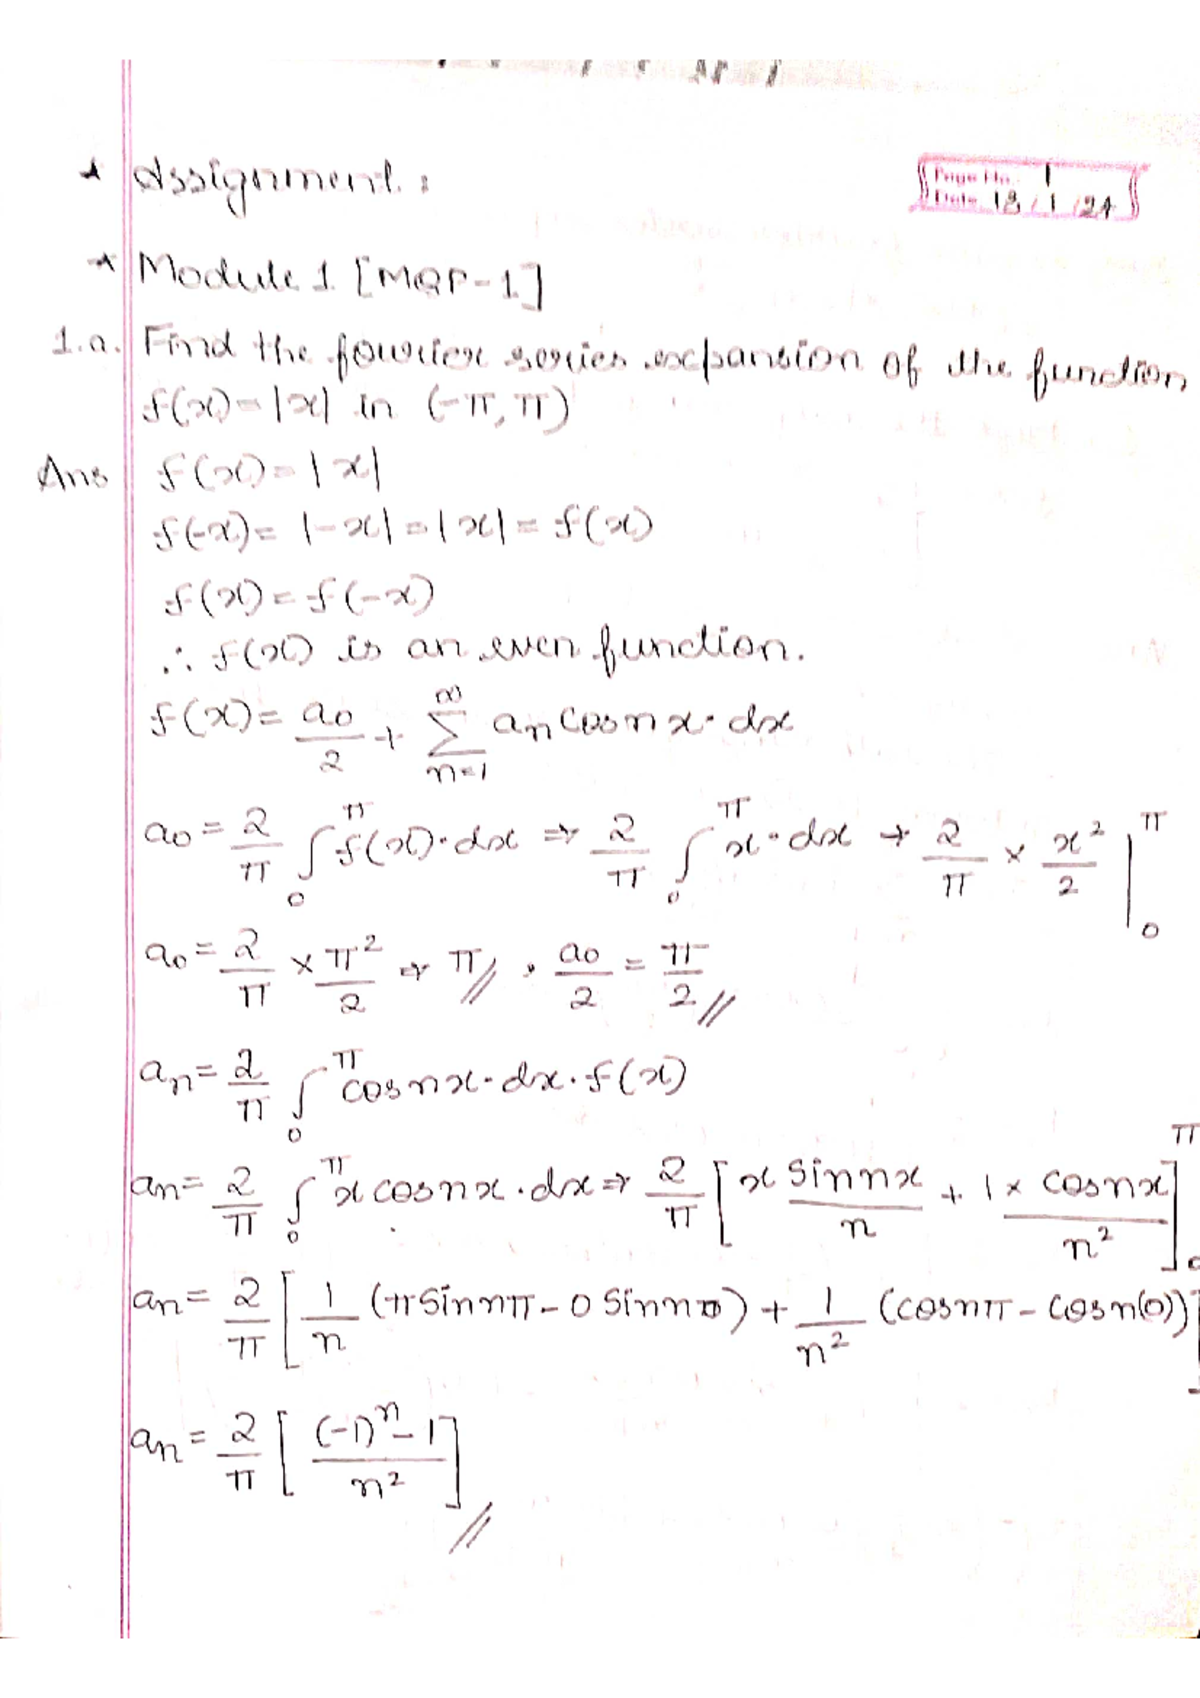 * Assignment :
Page No. 1
Date 18 / 1 / 24
* Module 1 [MQP-1]
1.a. Find the fourier series expansion of the function
f(x) = |x| in (-π, π)
Ans f(x) = |x|
f(-x) = |-x| = |x| = f(x)
f(x) = f(-x)
∴ f(x) is an even function.
f(x) = a0/2 + ∑_{n=1}^{∞} an cosnx · dx
a0 = 2/π ∫_0^π f(x) · dx ⇒ 2/π ∫_0^π x · dx → 2/π × x²/2 |_0^π
a0 = 2/π × π²/2 ⇒ π // , a0/2 = π/2 //
an = 2/π ∫_0^π cosnx · dx · f(x)
an = 2/π ∫_0^π x cosnx · dx ⇒ 2/π [x sinnx/n + 1 × cosnx/n²]_0^π
an = 2/π [1/n (π sin nπ - 0 sin n0) + 1/n² (cosnπ - cosn(0))]
an = 2/π [((-1)^n - 1)/n²] //